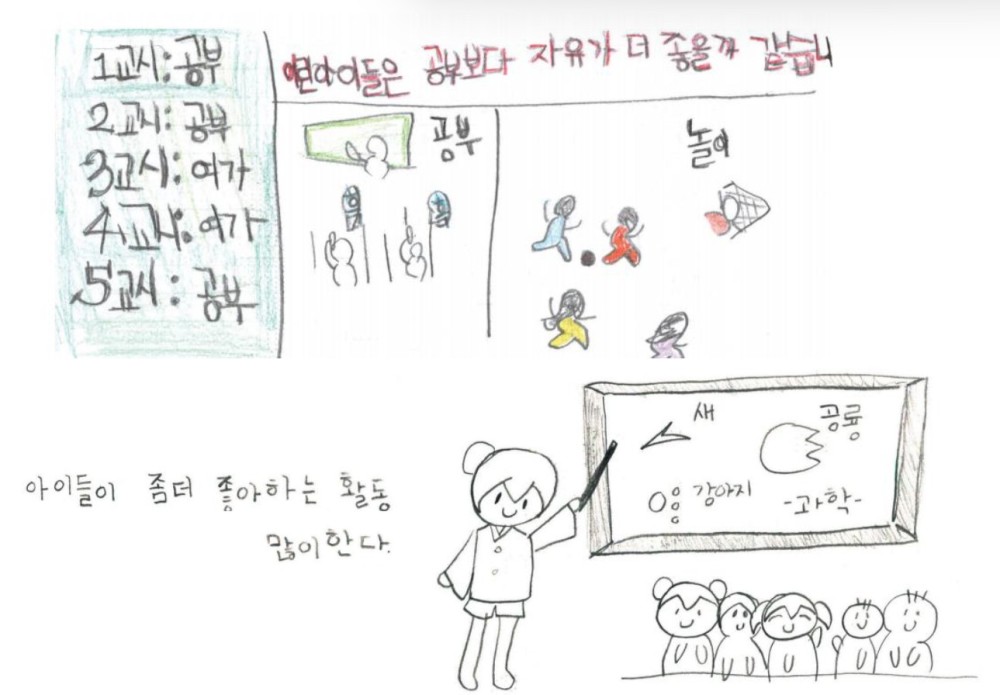 1교시: 공부
2교시: 공부
3교시: 여가
4교시: 여가
5교시: 공부
아이들은 공부보다 자유가 더 좋을거 같습니
공부
놀이
아이들이 좀더 좋아하는 활동
많이한다.
새
공룡
강아지
-과학-